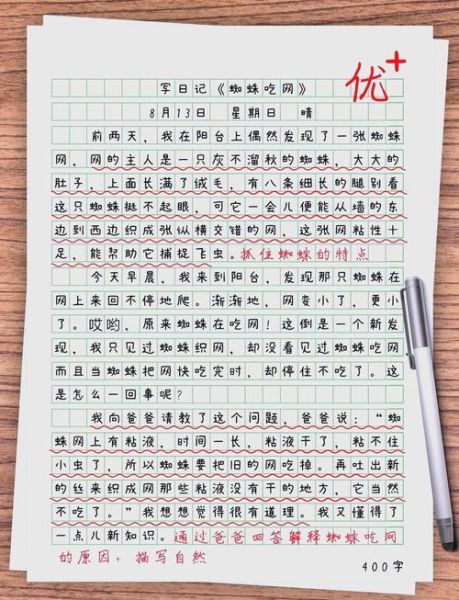 优+
写日记《蜘蛛吃网》
8月13日 星期日 晴
前两天，我在阳台上偶然发现了一张蜘蛛
网，网的主人是一只灰不溜秋的蜘蛛，大大的
肚子，上面长满了绒毛，有八条细长的腿别看
这只蜘蛛挺不起眼，可它一会儿便能从墙的东
边到西边织成张纵横交错的网，这张网粘性十
足，能帮助它捕捉飞虫。抓住蜘蛛的特点
今天早晨，我来到阳台，发现那只蜘蛛在
网上来回不停地爬。渐渐地，网变小了，更小
了。哎哟，原来蜘蛛在吃网！这倒是一个新发
现，我只见过蜘蛛织网，却没看见过蜘蛛吃网
而且当蜘蛛把网快吃完时，却停住不吃了。这
是怎么一回事呢？
我向爸爸请教了这个问题，爸爸说："蜘
蛛网上有粘液，时间一长，粘液干了，粘不住
小虫了，所以蜘蛛要把旧的网吃掉。再吐出新
的丝来织成网那些粘液没有干的地方，它当然
不吃了。"我想想觉得很有道理。我又懂得了
一点儿新知识。通过爸爸回答解释蜘蛛吃网
的原因，描写自然
400字